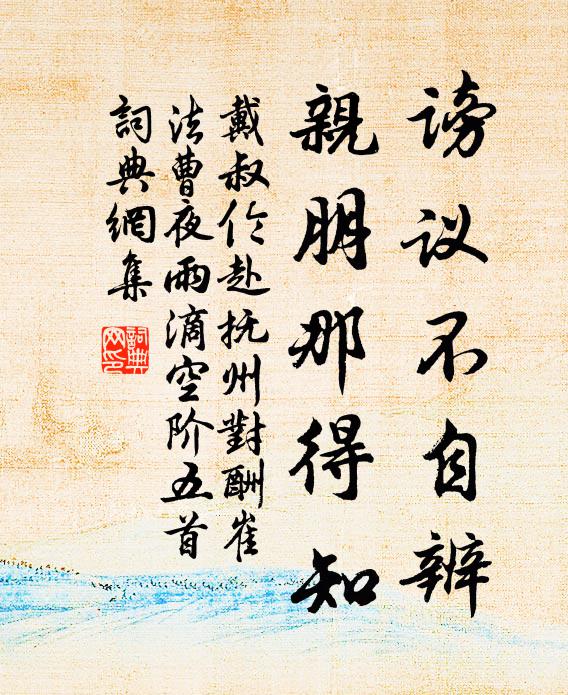 谤议不自辨
親朋那得知
戴叔伦赴抚州對酬崔
法曹夜雨滴空阶五首
詞典網集
詞典网印